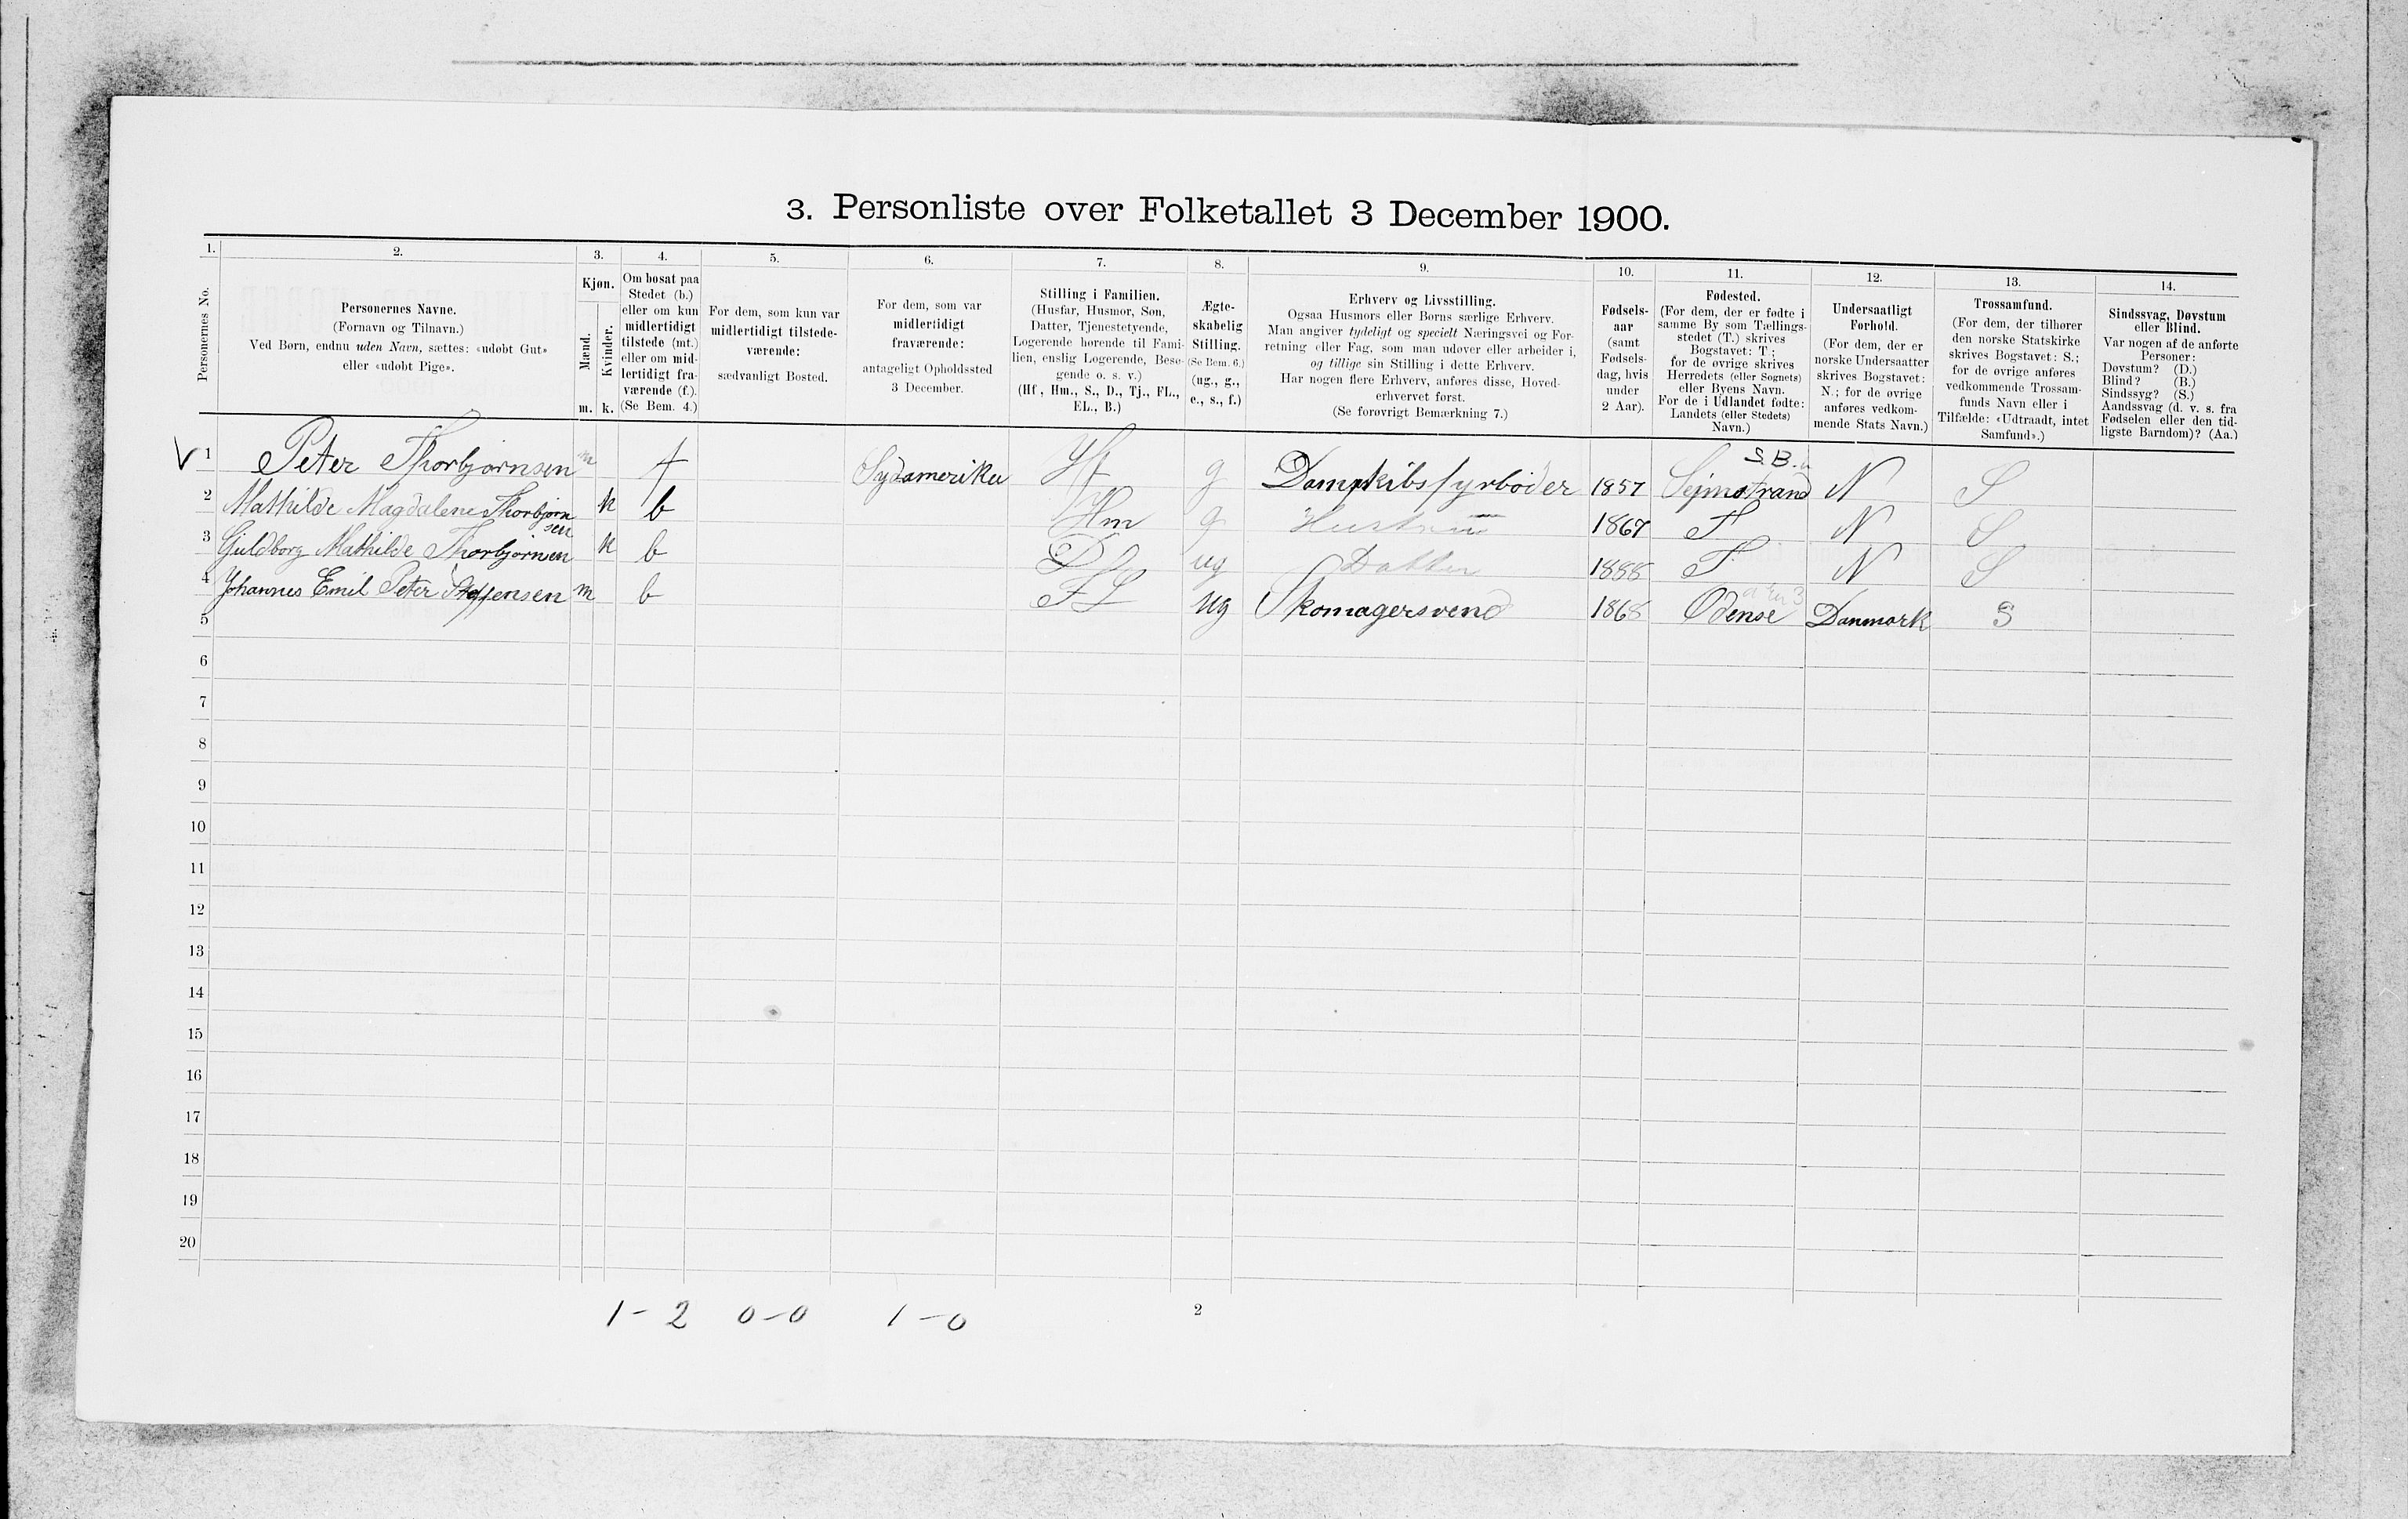 3. Personliste over Folketallet 3 December 1900.
1. 2. 3. 4. 5. 6. 7. 8. 9. 10. 11. 12. 13. 14.
Personernes No.
Personernes Navne.
(Fornavn og Tilnavn.)
Ved Børn, endnu uden Navn, sættes: «udøbt Gut»
eller «udøbt Pige».
Kjøn.
Mænd.
Kvinder.
m. k.
Om bosat paa
Stedet (b.)
eller om kun
midlertidigt
tilstede (mt.)
eller om mid-
lertidigt fra-
værende (f.).
(Se Bem. 4.)
For dem, som kun var
midlertidigt tilstede-
værende:
sædvanligt Bosted.
For dem, som var
midlertidigt
fraværende:
antageligt Opholdssted
3 December.
Stilling i Familien.
(Husfar, Husmor, Søn,
Datter, Tjenestetyende,
Logerende hørende til Fami-
lien, enslig Logerende, Besø-
gende o. s. v.)
(Hf, Hm., S., D., Tj., FL.,
EL., B.)
Ægte-
skabelig
Stilling.
(Se Bem. 6.)
(ug., g.,
e., s., f.)
Erhverv og Livsstilling.
Ogsaa Husmors eller Børns særlige Erhverv.
Man angiver tydeligt og specielt Næringsvei og For-
retning eller Fag, som man udøver eller arbeider i,
og tillige sin Stilling i dette Erhverv.
Har nogen flere Erhverv, anføres disse, Hoved-
erhvervet først.
(Se forøvrigt Bemærkning 7.)
Fødsels-
aar
(samt
Fødsels-
dag, hvis
under
2 Aar).
Fødested.
(For dem, der er fødte i
samme By som Tællings-
stedet (T.) skrives
Bogstavet: T;
for de øvrige skrives
Herredets (eller Sognets)
eller Byens Navn.
For de i Udlandet fødte:
Landets (eller Stedets)
Navn.)
Undersaatligt
Forhold.
(For dem, der er
norske Undersaatter
skrives Bogstavet:
N.; for de øvrige
anføres vedkom-
mende Stats Navn.)
Trossamfund.
(For dem, der tilhører
den norske Statskirke
skrives Bogstavet: S.;
for de øvrige anføres
vedkommende Trossam-
funds Navn eller i
Tilfælde: «Udtraadt, intet
Samfund».)
Sindssvag, Døvstum
eller Blind.
Var nogen af de anførte
Personer:
Døvstum? (D.)
Blind? (B.)
Sindssyg? (S.)
Aandssvag (d. v. s. fra
Fødselen eller den tid-
ligste Barndom)? (Aa.)
S.B.
V 1 Peter Thorbjørnsen m f Sydamerika Hf g Dampkibsfyrbøder 1857 N S
2 Mathilde Magdalene Thorbjørn k b Hm g Hustru 1867 T N S
sen
3 Guldborg Mathilde Thorbjørnsen k b D ug Datter 1888 T N S
4 Johannes Emil Peter Steffensen m b FL ug Skomagersvend 1868 Odense Danmark S
5
6
7
8
9
10
11
12
13
14
15
16
17
18
19
20
1 - 2 0-0 1-0 2